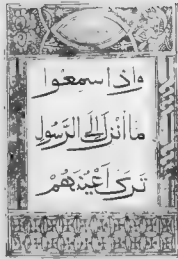 واذا سمعوا
ما انزل الى الرسول
ترى اعينهم